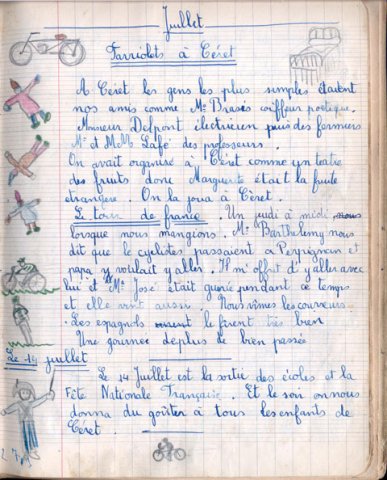 Juillet
Farriolets à Céret
A Céret les gens les plus simples étaient
nos amis comme Mr Brases coiffeur poétique.
Monsieur Delpont électricien puis des fermiers
Mr et MM Lafé des profeseurs.
On avait organisé à Céret comme un teatre
des fruits donc Marguerite était la
etrangere. On la joua à Céret.
Le tour de france. Un jeudi à midi nous
lorsque nous mangions. Mr Barthelemy nous
dit que le cyclistes passaient a Perpignein et
papa y voulait y aller. Il m'offrit d'y aller avec
lui et Mr José était guerie pendant ce temps
et elle vint aussi. Nous vîmes les coureurs.
Les espagnols le firent très bien
Une journee deplus de bien passée
Le 14 juillet
Le 14 Juillet est la sortie des écoles et la
Fête Nationale Française. Et le soir on nous
donna du goûter à tous les enfants de
Céret.